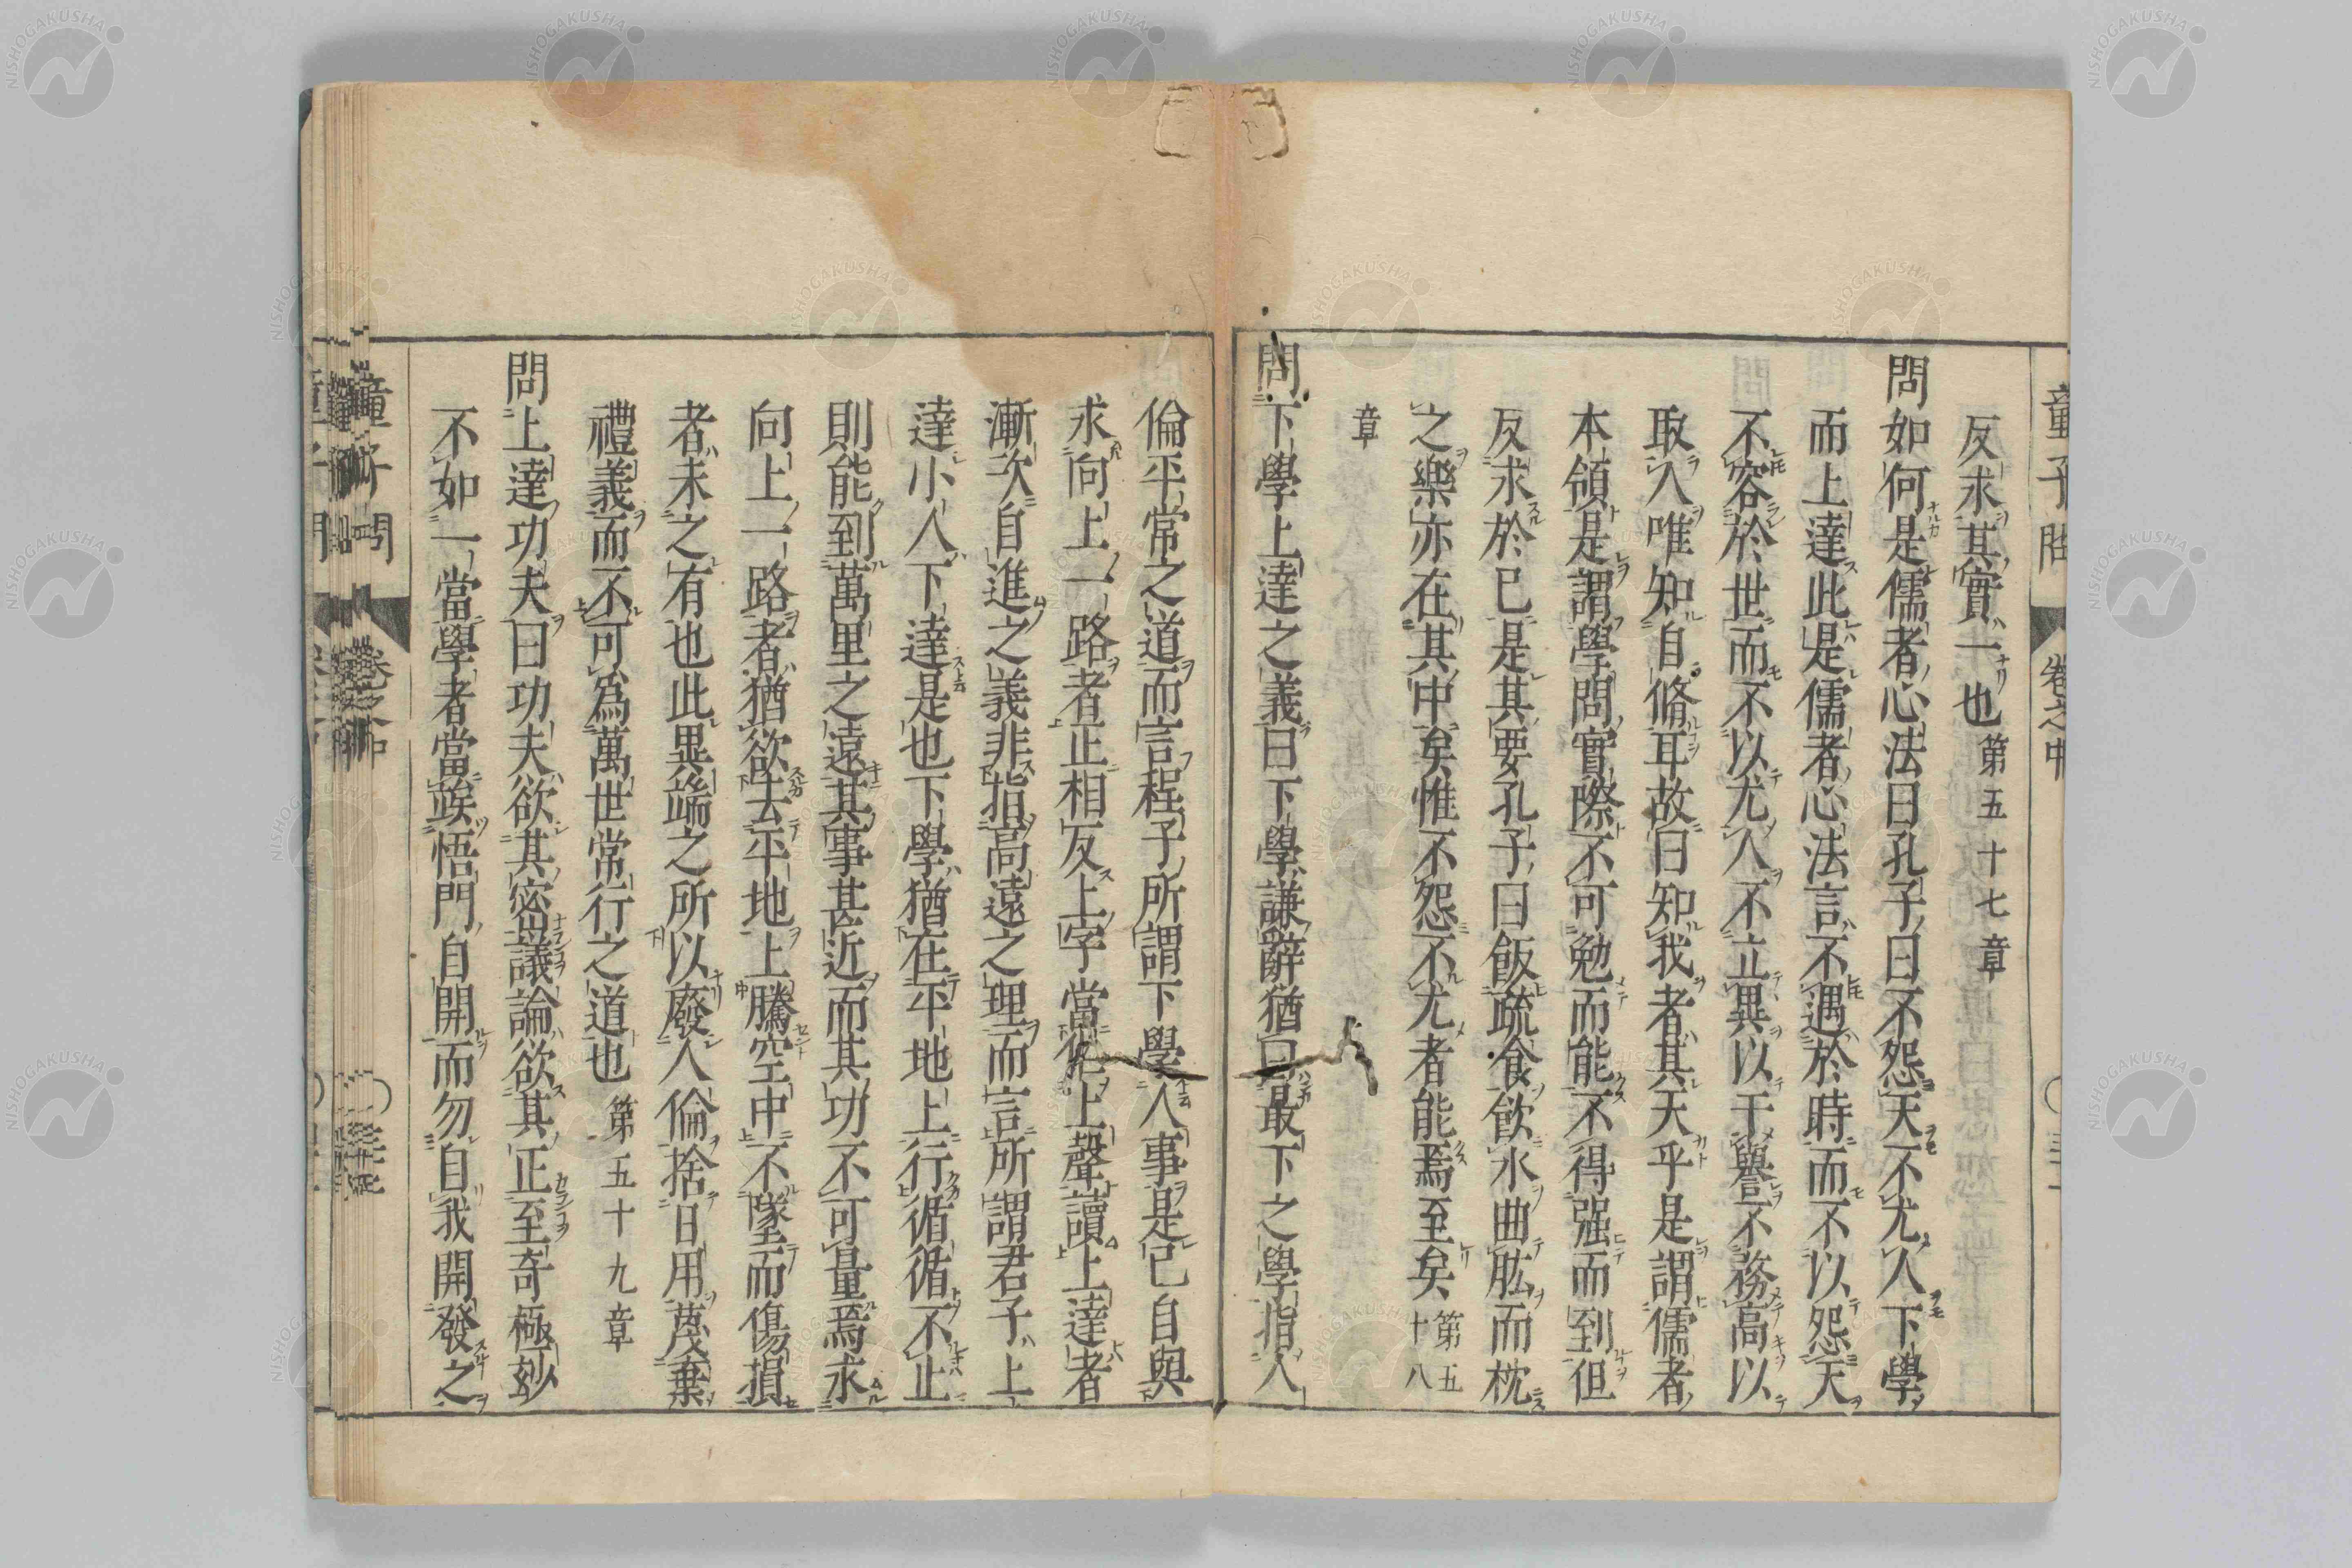 童子問 卷之中
反求其實一也第五十七章
問如何是儒者心法曰孔子曰不怨天不尤人下學
而上達此是儒者心法言不遇於時而不以怨天
不容於世而不以尤人不立異以干譽不務高以
取人唯知自脩耳故曰知我者其天乎是謂儒者
本領是謂學問實際不可勉而能不得强而到但
反求於己是其要孔子曰飯疏食飮水曲肱而枕
之樂亦在其中矣惟不怨不尤者能焉至矣第五十八
章
問下學上達之義曰下學謙辭猶曰最下之學指人
倫平常之道而言程子所謂下學人事是已自與
求向上一路者正相反上字當從上聲讀上達者
漸次自進之義非指高遠之理而言所謂君子上
達小人下達是也下學猶在平地上行循循不止
則能到萬里之遠其事甚近而其功不可量焉求
向上一路者猶欲去平地上騰空中不墜而傷損
者未之有也此異端之所以廢人倫捨日用蔑棄
禮義而不可爲萬世常行之道也第五十九章
問上達功夫曰功夫欲其密議論欲其正至奇極玅
不如一當學者當竢悟門自開而勿自我開發之
童子問 卷之中
NISHOGAKUSHA